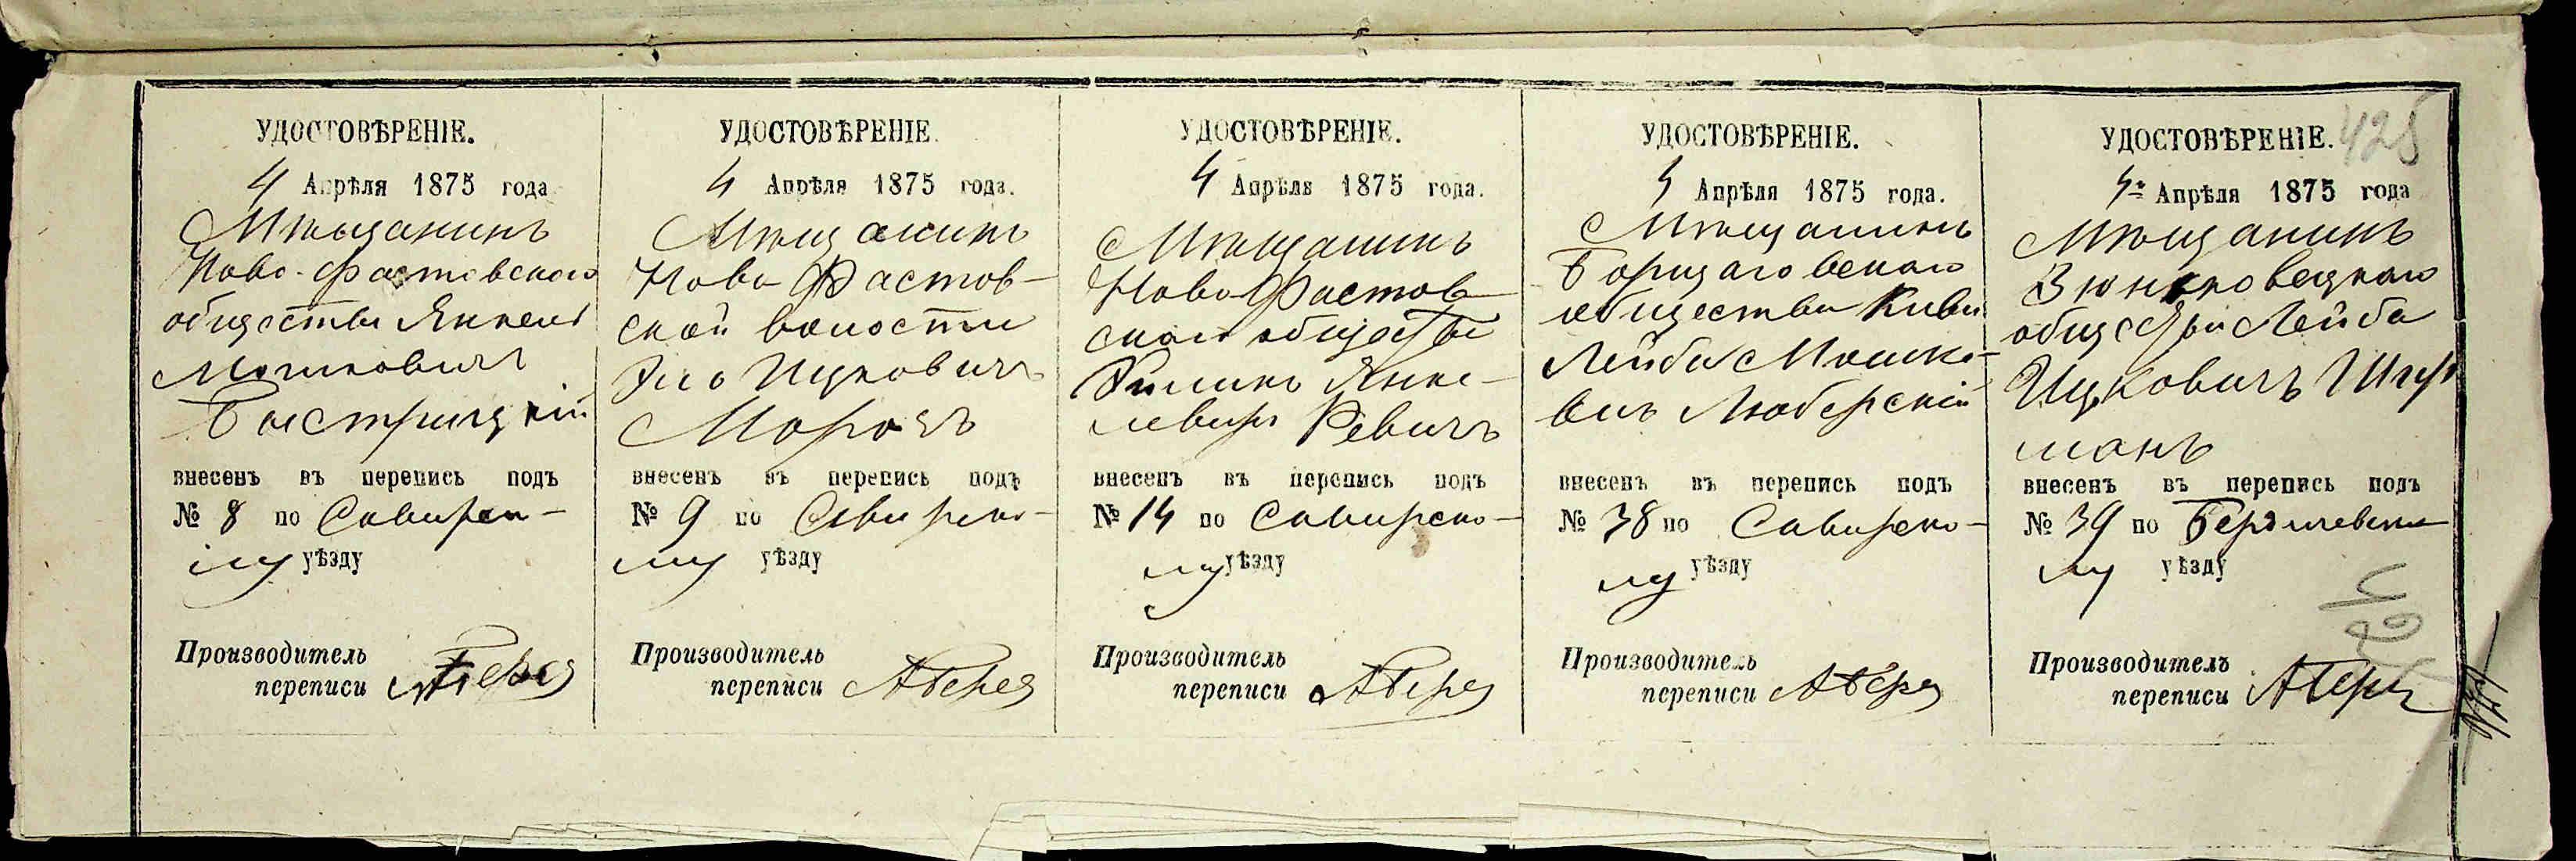 УДОСТОВѢРЕНІЕ.
4 Апрѣля 1875 года
Мѣщанинъ
Ново-Фастовскаго
общества Янкель
Мошковичъ
Быстрицкій
внесенъ въ перепись подъ
№ 8 по Сквирско-
му уѣзду
Производитель
переписи
УДОСТОВѢРЕНІЕ
4 Апрѣля 1875 года.
Мѣщанинъ
Ново Фастов-
ской волости
Ицковичъ
Морозъ
внесенъ въ перепись подъ
№ 9 по Сквирско-
му уѣзду
Производитель
переписи
УДОСТОВѢРЕНІЕ.
4 Апрѣля 1875 года.
Мѣщанинъ
Ново Фастов-
скаго общества
Янке-
Ревичъ
внесенъ въ перепись подъ
№ 14 по Сквирско-
му уѣзду
Производитель
переписи
УДОСТОВѢРЕНІЕ.
4 Апрѣля 1875 года.
Мѣщанинъ
Борщаговскаго
общества
Лейба Мошко-
вичъ Люберскій
внесенъ въ перепись подъ
№ 38 по Сквирско-
му уѣзду
Производитель
переписи
УДОСТОВѢРЕНІЕ. 425
4 Апрѣля 1875 года
Мѣщанинъ
общества Лейба
Ицковичъ
манъ
внесенъ въ перепись подъ
№ 39 по Бердичевско
му уѣзду
Производитель
переписи